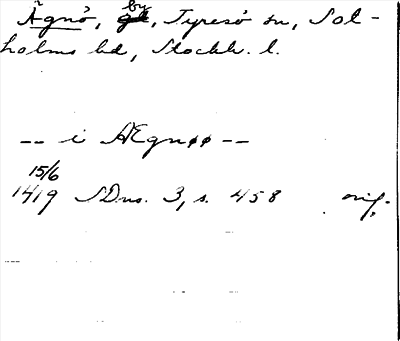 Ägnö, by, Tyresö sn, Sot-
holms hd, Stockh. l.
-- i Ægnøø --
15/6
1419 SDns. 3, s. 458 orig.